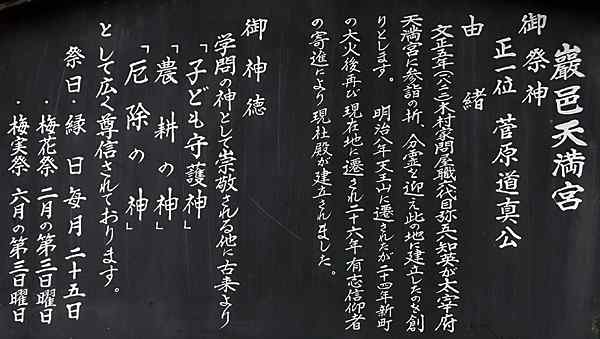 巖邑天満宮
御祭神
正一位 菅原道真公
由緒
文正五年(八二二木村家問屋職六代目弥五八知英が太宰府
天満宮に参詣の折、分霊を迎え此の地に建立したのを創
りとします。 明治八年天王山に遷されたが二十四年新町
の大火後再び現在地に遷され二十六年、有志信仰者
の寄進により現社殿が建立されました。
御神徳
学問の神として崇敬される他に古来より
「子ども守護神」
「農耕の神」
「厄除の神」
として広く尊信されております。
祭日・縁日 毎月二十五日
・梅花祭 二月の第三日曜日
・梅実祭 六月の第三日曜日